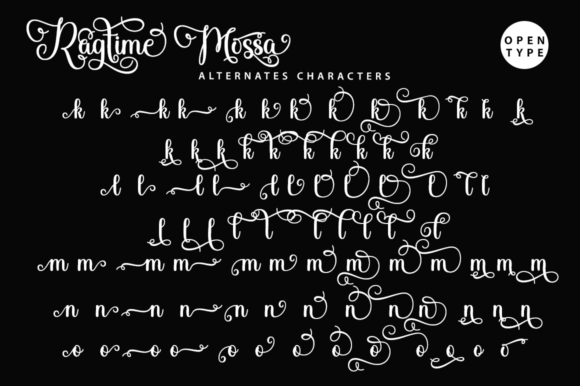 Ragtime Mossa
OPEN
TYPE
ALTERNATES CHARACTERS
k k k k k k k k k k k k k
k k k k k k k k k k
l l l l l l l l l l l l l
l l l l l l l l l l
m m m m m m m m m m m m m
n n n n n n n n n n n n n
o o o o o o o o o o o o o